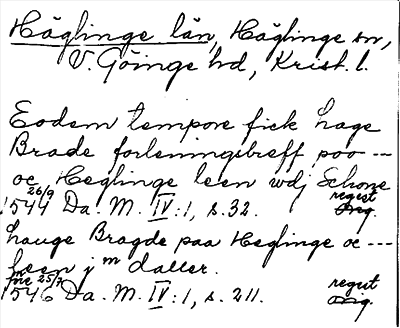 Häglinge län, Häglinge sn,
V. Göinge hd, Krist. l.
Eodem tempore fick hage
Brade forleningsbreff poo ---
oc Heglinge leen wdj Schone
26/9 regist
1544 Da. M. IV:1, s. 32. orig.
hauge Bragde paa Heglinge oc ---
leen j m daller.
före 25/7 regist
1546 Da. M. IV:1, s. 211. orig.